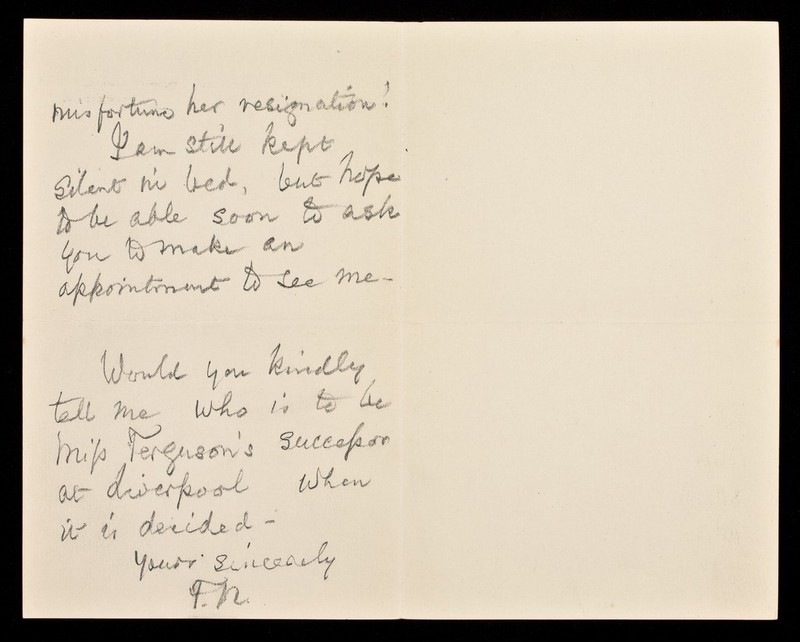 misfortune her resignation!
I am still kept
silent in bed, but hope
to be able soon to ask
you to make an
appointment to see me -
Would you kindly
tell me who is to be
Miss Ferguson's successor
at Liverpool when
it is decided -
Yours sincerely
F.N.